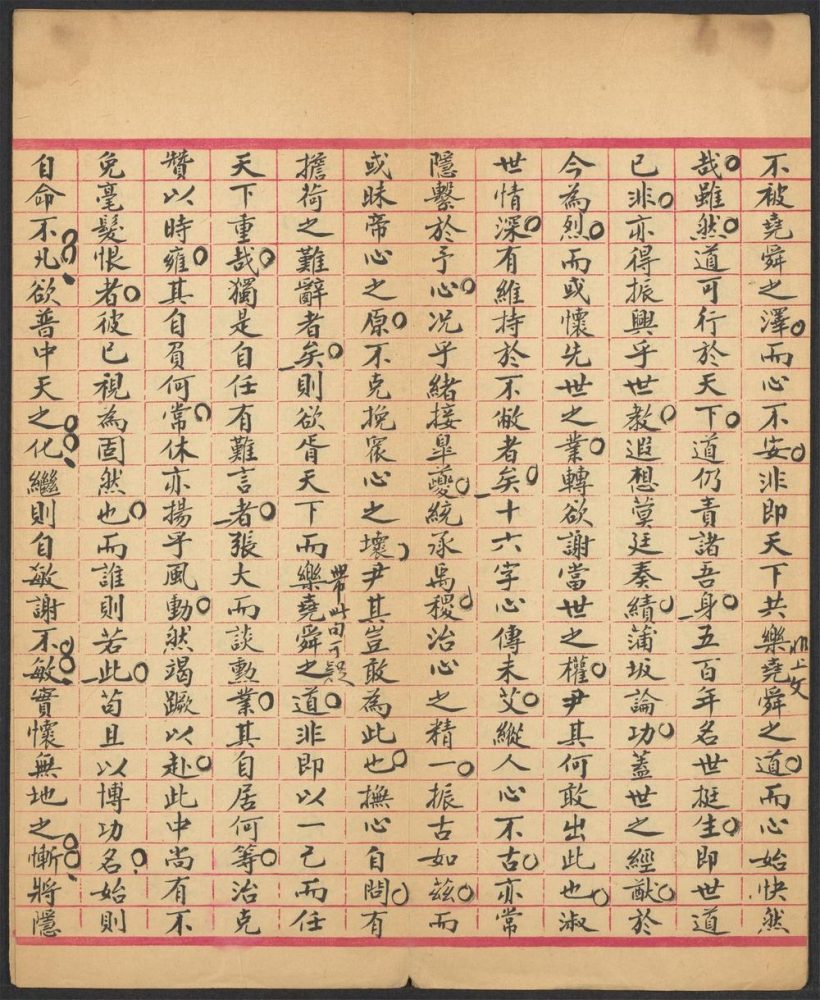 不被堯舜之澤而心不安非即天下共樂堯舜之道而心始快然
上文
哉雖然道可行於天下道仍責諸吾身五百年名世挺生即世道
已非亦得振興乎世教遐想蓂廷奏績蒲坂論功蓋世之經猷於
今為烈而或懷先世之業轉欲謝當世之權尹其何敢出此也淑
世情深有維持於不敝者矣十六字心傳未艾縱人心不古亦常
隱繫於予心况乎緒接皋夔統承禹稷治心之精一振古如茲而
或昧帝心之原不克挽衆心之壞尹其豈敢為此也撫心自問有
擔荷之難辭者矣則欲胥天下而樂堯舜之道非即以一己而任
此句可疑
天下重哉獨是自任有難言者張大而談勳業其自居何等治克
贊以時雍其自負何常休亦揚乎風動然竭蹶以赴此中尚有不
免毫髮恨者彼已視為固然也而誰則若此苟且以博功名始則
自命不凡欲普中天之化繼則自敏謝不敏實懷無地之慚將隱